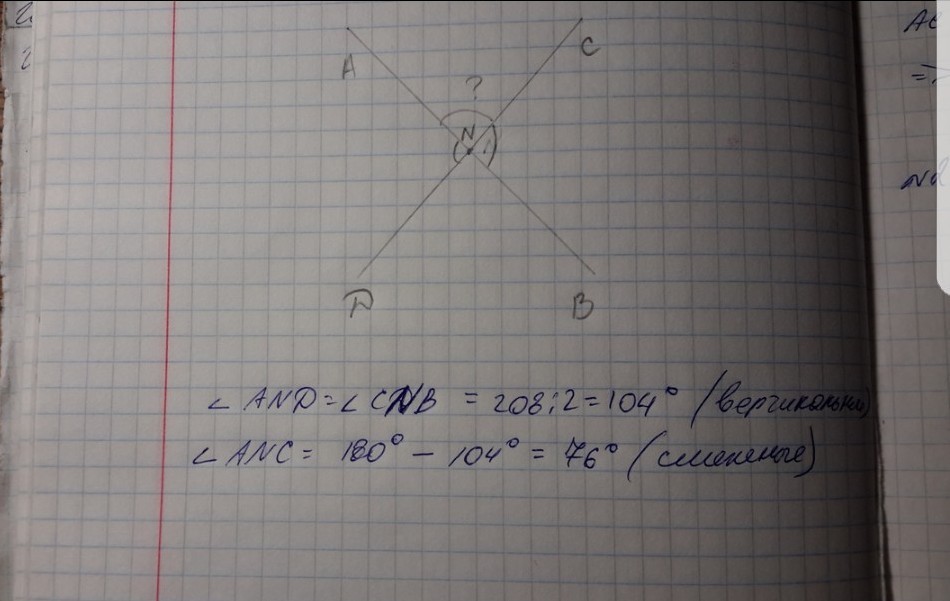 A
C
?
N
D
B
∠ AND = ∠ CNB = 208:2=104° (вертикальные)
∠ ANC = 180° − 104° = 76° (смежные)